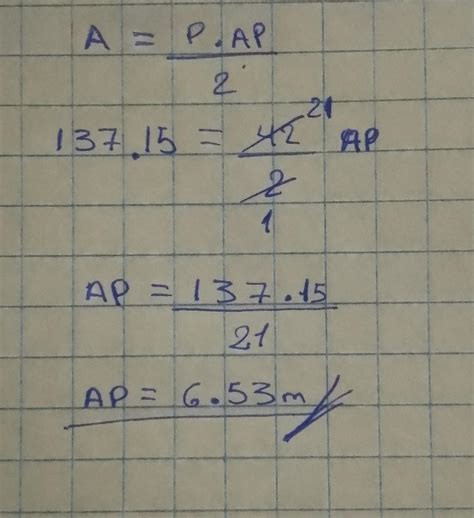 A = P.AP
2
137.15 = 42 21 AP
2
1
AP = 137.15
21
AP = 6.53m